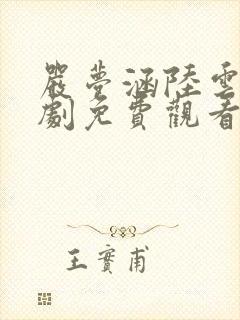 嚴夢涵陸雲
劇免費觀看
王實甫